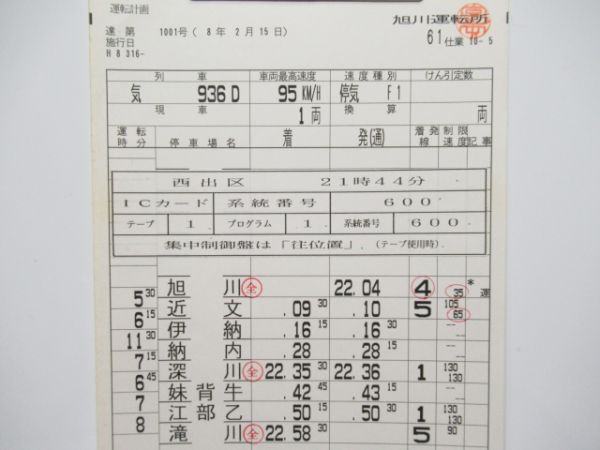 運転計画
達 第 1001号( 8 年 2 月 15 日)
施行日
H 8 316-
旭川運転所
61 仕業 10- 5
列 車 車両最高速度 速度種別 けん引定数
気 936 D 95 KM/H 停気 F1
現 車 1 両 換 算 両
運転時分 停車場名 着 発(通) 着発線 制限速度 記事
西出区 21時44分
ICカード 系統番号 600
テープ 1 プログラム 1 系統番号 600
集中制御盤は「往位置」(テープ使用時)
旭 川 全 22.04 4 35 * 運
5 30
近 文 .09 30 .10 5 105 65
6 15
伊 納 .16 15 .16 30 -- --
11 30
納 内 .28 .28 15 -- --
7 15
深 川 全 22.35 30 22.36 1 130 130
6 45
妹 背 牛 .42 45 .43 15 -- --
7
江 部 乙 .50 15 .50 30 1 130 130
8
滝 川 全 22.58 30 5 90